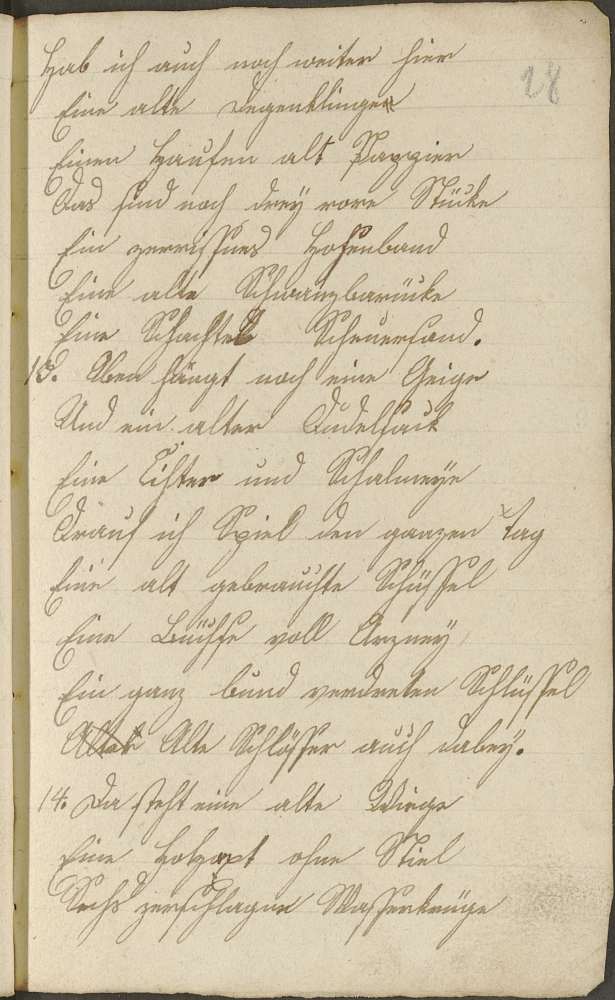 Hab ich auch noch weiter hier
28
Eine alte Degenklingen
Einen Haufen alt Pappier
Das sind noch drey rare Stücke
Ein zerrißnes Hosenband
Eine alte Schwanzbarücke
Eine Schachtel Scheuersand.
13. Oben hängt noch eine Geige
Und ein alter Dudelsack
Eine Zitter und Schalmeye
Drauf ich Spiel den ganzen tag
Eine alt gebrauchte Schüssel
Eine Büchse voll Arzney
Ein ganz bund verdreten Schlüssel
Alte Schlösser auch dabey.
14. Da steht eine alte Wiege
Eine Holzaxt ohne Stiel
Sechs zerschlagne Wasserkrüge